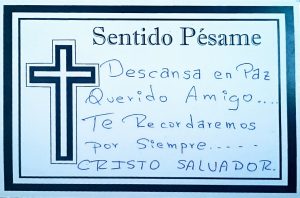 Sentido Pésame
Descansa en Paz
Querido Amigo....
Te Recordaremos
por Siempre.....
CRISTO SALVADOR.